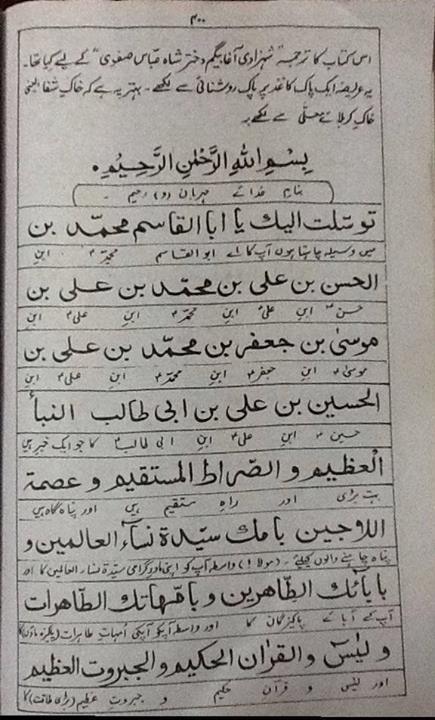 ۳۰۰
اس کتاب کا ترجمہ شہزادی آغا بیگم دختر شاہ عباس صفوی" کے لیے کیا تھا۔
یہ عریضہ ایک پاک کاغذ پر پاک روشنائی سے لکھے۔ بہتر یہ ہے کہ خاکِ شفا یعنی
خاکِ کربلائے معلّٰی سے لکھے
بِسْمِ اللهِ الرَّحْمٰنِ الرَّحِيْمِ
بنام خدائے مہربان (و) رحیم ۔
توسّلت اليك يا ابا القاسم محمّد بن
میں وسیلہ چاہتا ہوں آپ کا اے ابو القاسم محمدؑ ابن
الحسن بن على بن محمّد بن على بن
حسنؑ ابن علیؑ ابن محمدؑ ابن علیؑ ابن
موسىٰ بن جعفر بن محمّد بن على بن
موسیٰؑ ابن جعفرؑ ابن محمدؑ ابن علیؑ ابن
الحسين بن على بن ابى طالب النبأ
حسینؑ ابن علیؑ ابن ابی طالبؑ کا جو ایک خبر ہیں
العظيم و الصّراط المستقيم و عصمة
بہت بڑی اور راہِ مستقیم ہیں اور پناہ گاہ ہیں
اللاجين بامك سيّدة نسآء العالمين و
پناہ چاہنے والوں کیلئے۔ (مولا!) واسطہ آپ کو اپنی مادرِ گرامی سیّدۃ نساء العالمین کا اور
بابآئك الطّاهرين و بامّهاتك الطّاهرات
آپ کے آبائے پاکیزگان کا اور واسطہ آپ کو آپکی اُمہاتِ طاہرات
و يٰسٓ والقرآن الحكيم و الجبروت العظيم
اور یٰس و قرآن حکیم و جبروت عظیم